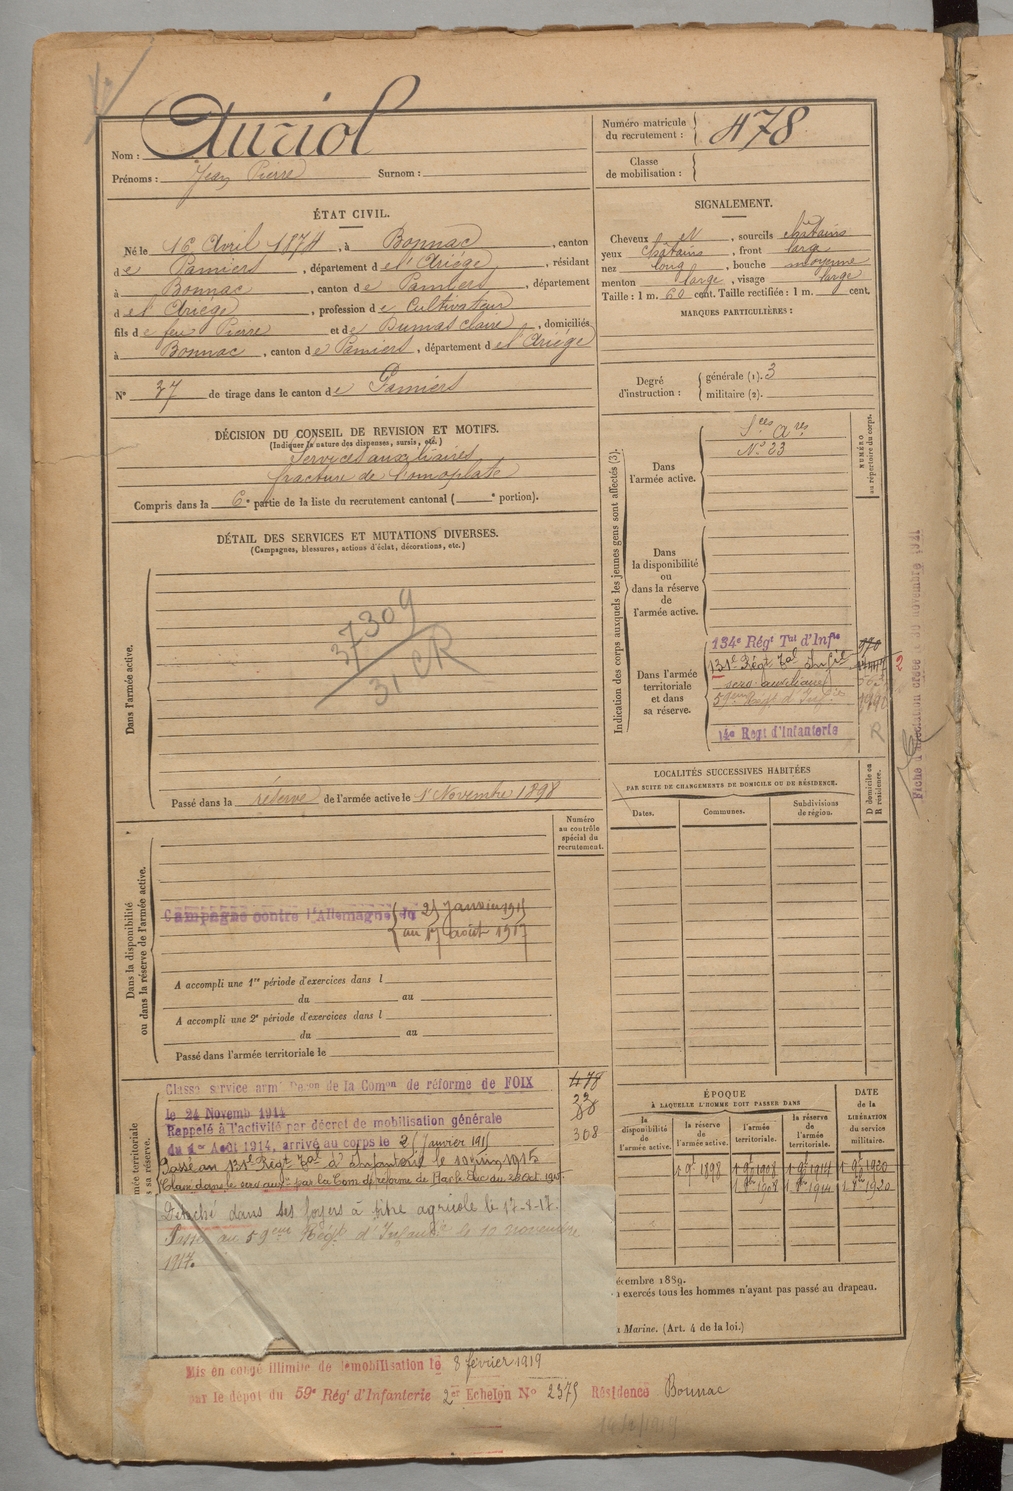 Nom : Auriol
Prénoms : Jean Pierre Surnom :
Numéro matricule
du recrutement : 478
Classe
de mobilisation :
ÉTAT CIVIL.
Né le 16 Avril 1874, à Bonnac, canton
de Pamiers, département de l'Ariège, résidant
à Bonnac, canton de Pamiers, département
de l'Ariège, profession de Cultivateur
fils de feu Pierre et de Dumas Claire, domiciliés
à Bonnac, canton de Pamiers, département de l'Ariège
N° 37 de tirage dans le canton de Pamiers
SIGNALEMENT.
Cheveux et, sourcils châtains
yeux châtains, front large
nez long, bouche moyenne
menton large, visage large
Taille : 1 m. 60 cent. Taille rectifiée : 1 m. cent.
MARQUES PARTICULIÈRES :
Degré
d'instruction :
générale (1). 3
militaire (2).
DÉCISION DU CONSEIL DE REVISION ET MOTIFS.
(Indiquer la nature des dispenses, sursis, etc.)
Services auxiliaires
fracture de l'omoplate
Compris dans la 6e partie de la liste du recrutement cantonal ( e portion).
DÉTAIL DES SERVICES ET MUTATIONS DIVERSES.
(Campagnes, blessures, actions d'éclat, décorations, etc.)
Dans l'armée active.
37309
31 CR
Passé dans la réserve de l'armée active le 1er Novembre 1898
Indication des corps auxquels les jeunes gens sont affectés (3).
NUMÉRO
au répertoire du corps.
Dans
l'armée active.
Sces Ares
N° 23
Dans
la disponibilité
ou
dans la réserve
de
l'armée active.
Dans l'armée
territoriale
et dans
sa réserve.
134e Régt Tal d'Infie
131e Régt Tal Infie
serv auxiliaire
59eme Régt d'Infie
14e Regt d'Infanterie
R
2
LOCALITÉS SUCCESSIVES HABITÉES
PAR SUITE DE CHANGEMENTS DE DOMICILE OU DE RÉSIDENCE.
Dates. Communes. Subdivisions
de région.
D domicile ou
R résidence.
Numéro
au contrôle
spécial du
recrutement.
Dans la disponibilité
ou dans la réserve de l'armée active.
Campagne contre l'Allemagne du 25 Janvier 1915
au 17 août 1917
A accompli une 1re période d'exercices dans l
du au
A accompli une 2e période d'exercices dans l
du au
Passé dans l'armée territoriale le
Classé service armé Décon de la Comon de réforme de FOIX
le 24 Novemb 1914
Rappelé à l'activité par décret de mobilisation générale
du 1er Août 1914, arrivé au corps le 25 Janvier 1915
Passé au 131e Régt Tal d'Infanterie le 10 juin 1915
Classé dans le serv aux par la Com de réforme de Bar le Duc du 28 Oct 1915
478
308
Détaché dans ses foyers à titre agricole le 17-8-17.
Passé au 59eme Régt d'Infanterie le 10 novembre
1917.
ÉPOQUE
À LAQUELLE L'HOMME DOIT PASSER DANS
DATE
de la
LIBÉRATION
du service
militaire.
la
disponibilité
de
l'armée active.
la réserve
de
l'armée active.
l'armée
territoriale.
la réserve
de
l'armée
territoriale.
1 9bre 1898 1 9bre 1908 1 9bre 1914 1 9bre 1920
1 8bre 1908 1 8bre 1914 1 8bre 1920
écembre 1889.
n exercés tous les hommes n'ayant pas passé au drapeau.
a Marine. (Art. 4 de la loi.)
Mis en congé illimité de démobilisation le 8 février 1919
par le dépôt du 59e Régt d'Infanterie 2er Echelon N° 2375 Résidence Bonnac